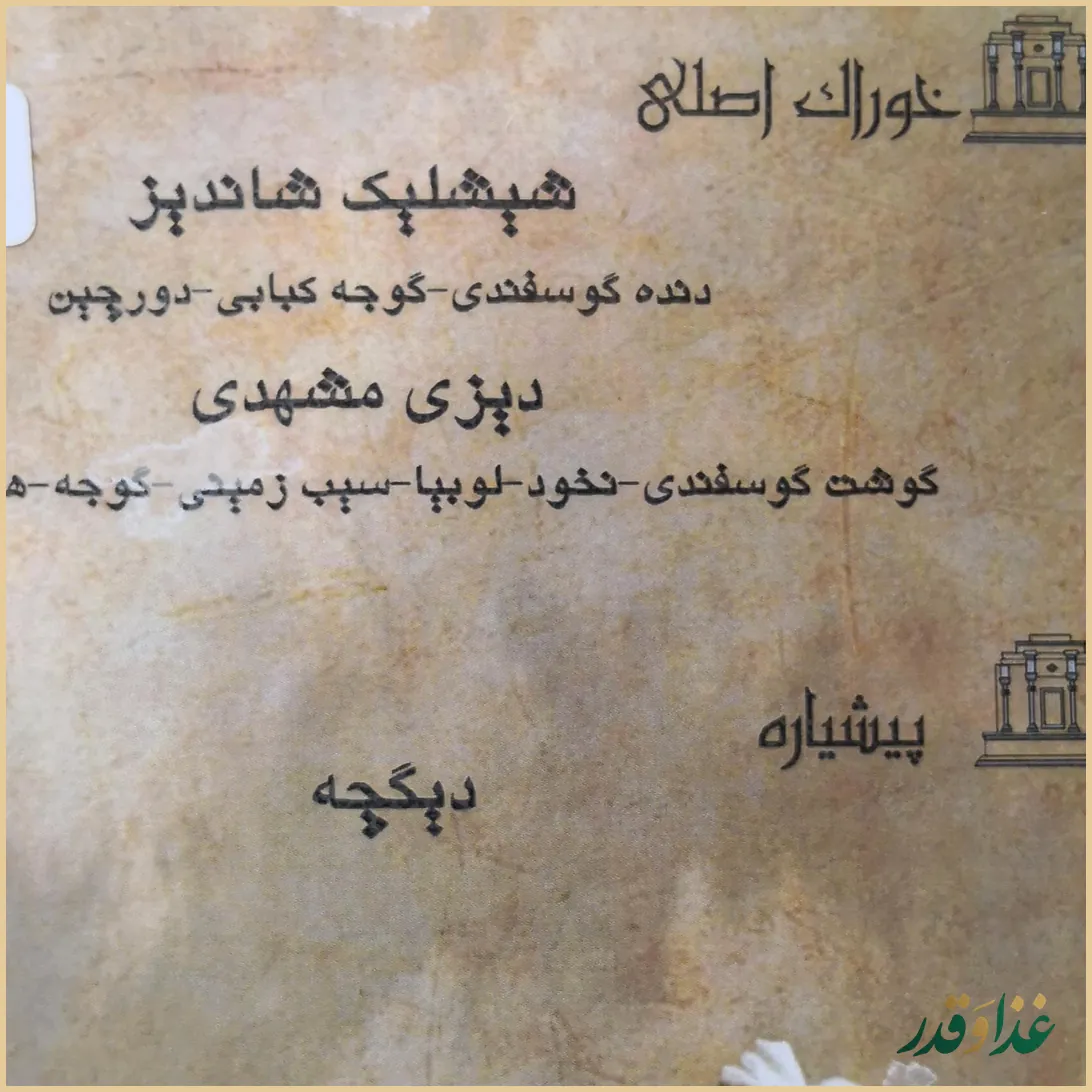 خوراك اصلی
شیشلیک شاندیز
دنده گوسفندی-گوجه کبابی-دورچین
دیزی مشهدی
گوشت گوسفندی-نخود-لوبیا-سیب زمینی-گوجه-
پیشیاره
دیگچه
غذا و قدر